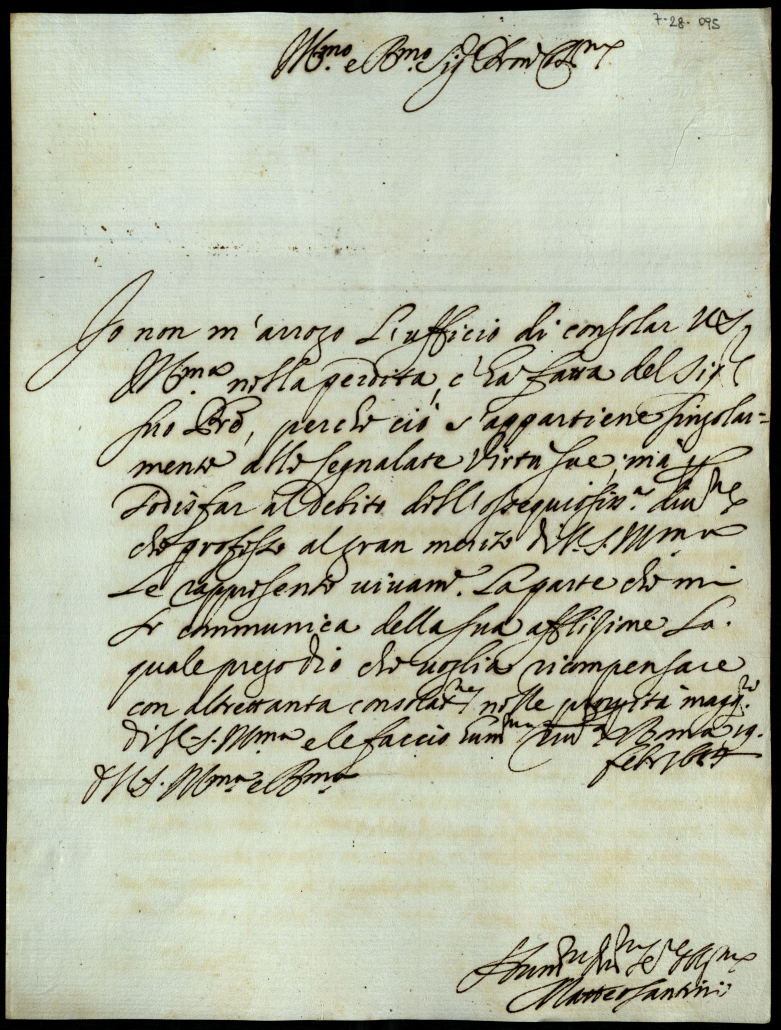 7-28-095
Ill.mo e R.mo Sig.r Pron Col.mo
Io non m'arrogo l'ufficio di consolar V.S.
Ill.ma nella perdita, c'ha fatta del Sig.r
suo Pre, perche ciò s'appartiene singolar=
mente alle segnalate virtù sue; mà p
sodisfar al debito dell'ossequiosiss.a
che professo al gran merito di V.S. Ill.ma
le rappresento vivam.te la parte che mi
si communica della sua afflitione la
quale prego Dio che voglia ricompensare
con altrettanta consolat.ne nelle prosperità magg.ri
di V.S. Ill.ma e le faccio hum.ma Roma 19.
febr.
di V.S. Ill.ma e R.ma
Hum.mo
Matteo Santini